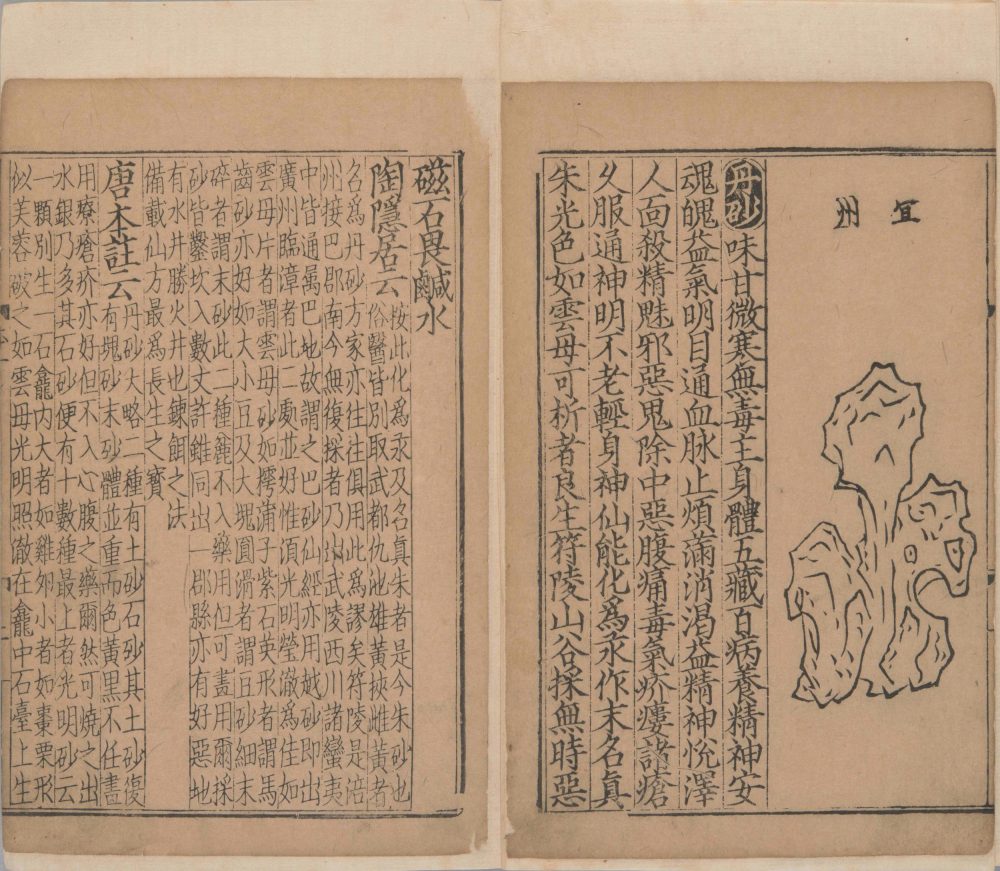 宜州
丹砂味甘微寒無毒主身體五藏百病養精神安
魂魄益氣明目通血脉止煩滿消渴益精神悅澤
人面殺精魅邪惡鬼除中惡腹痛毒氣疥瘻諸瘡
久服通神明不老輕身神仙能化爲汞作末名真
朱光色如雲母可析者良生符陵山谷採無時惡
磁石畏鹹水
按此化爲汞及名真朱者是今朱砂也
陶隱居云俗醫皆別取武都仇池雄黃挾雌黃者
名爲丹砂方家亦往往俱用此爲謬矣符陵是涪
州接巴郡南今無復採者乃出武陵西川諸蠻夷
中皆通屬巴地故謂之巴砂仙經亦用越砂即出
廣州臨漳者此二處並好惟須光明瑩澈爲佳如
雲母片者謂雲母砂如樗蒲子紫石英形者謂馬
齒砂亦好如大小豆及大塊圓滑者謂豆砂細末
碎者謂末砂此二種麄不入藥用但可畫用爾採
砂皆鑿坎入數丈許雖同出一郡縣亦有好惡地
有水井勝火井也鍊餌之法
備載仙方最爲長生之寶
唐本註云丹砂大略二種有土砂石砂其土砂復
有塊砂末砂體並重而色黃黑不任畫
用療瘡疥亦好但不入心腹之藥爾然可燒之出
水銀乃多其石砂便有十數種最上者光明砂云
一顆別生一石龕內大者如雞卵小者如棗栗形
似芙蓉破之如雲母光明照澈在龕中石臺上生